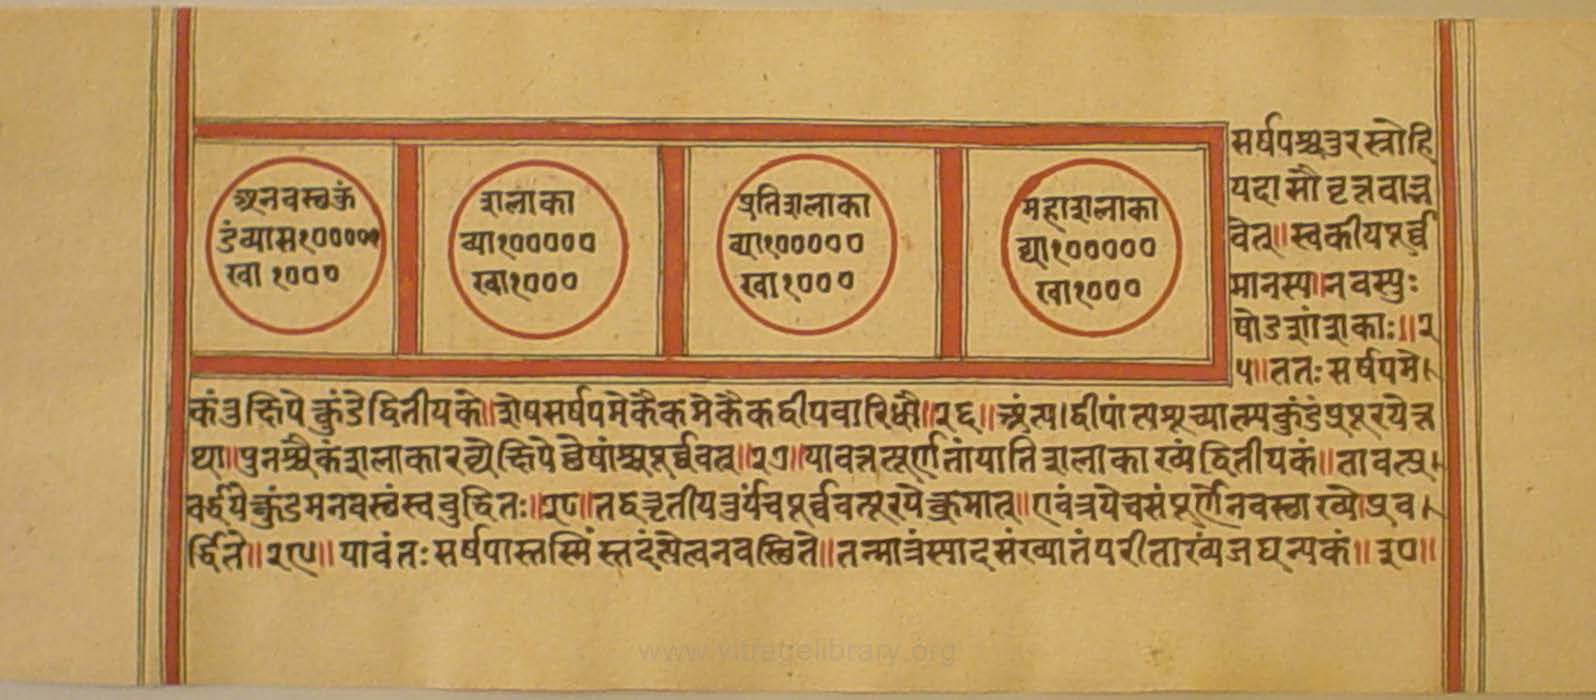 अनवस्थकं
डंव्यास१०००००
खा १०००
शलाका
व्या१०००००
खा१०००
प्रतिशलाका
व्या१०००००
खा१०००
महाशलाका
व्या१०००००
खा१०००
सर्षपश्चतुरस्रोहि
यदासौवृत्तवान्न
वेत्॥स्वकीयपूर्व्व
मानस्य॥नवस्युः
षोडशांशकाः॥२
५॥ततःसर्षपमे
कंतुक्षिपेत्कुंडेद्वितीयके॥शेषसर्षपमेकैकमेकैकद्वीपवारिधौ॥२६॥अंत्य।द्वीपांत्य
था॥पुनश्चैकंशलाका पूर्व्ववत्॥२७॥यावत्तत्पूर्णतांयातिशलाकाख्यंद्वितीयकं॥तावत्प्र
कुंडमनवस्थंस्वबुद्धितः॥२८॥ पूर्व्ववत्पूरयेत्क्रमात्॥एवंत्रयेचसंपूर्णेनवस्थाख्येप्रव
र्द्धिते॥२९॥यावंतःसर्षपास्तस्मिं तन्मात्रंस्यादसंख्यातंपरीताख्यंजघन्यकं॥३०॥
www.vitragelibrary.org